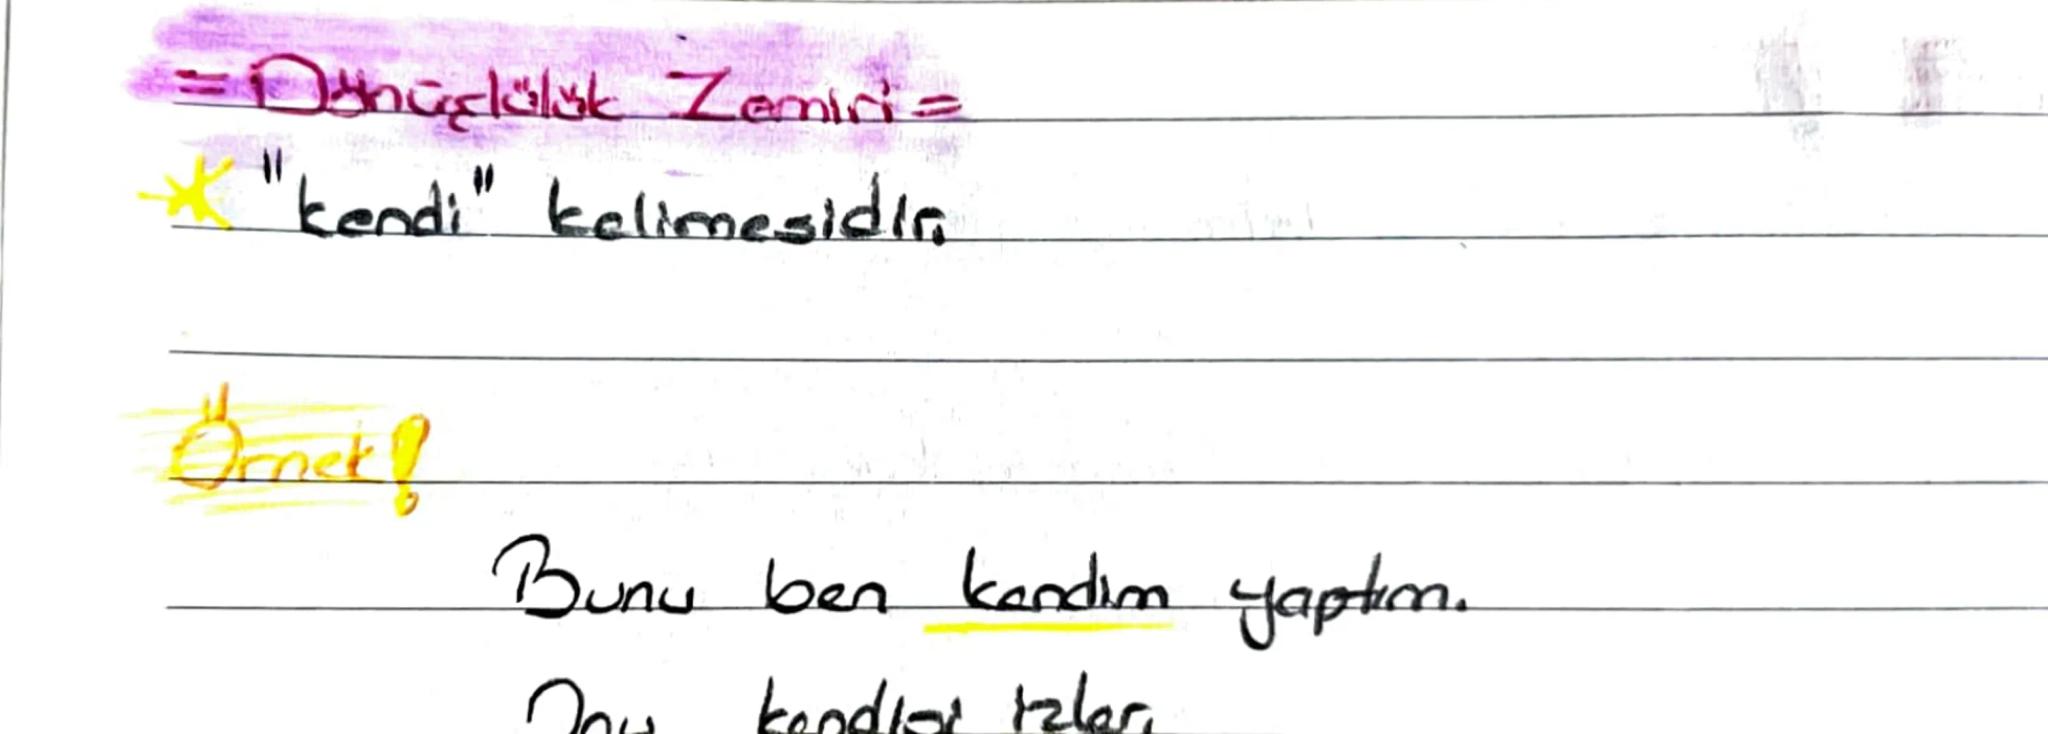 = Dönüşlülük Zamiri =
"kendi" kelimesidir.
Örnek!
Bunu ben kendim yaptım.
Onu kendisi izler.